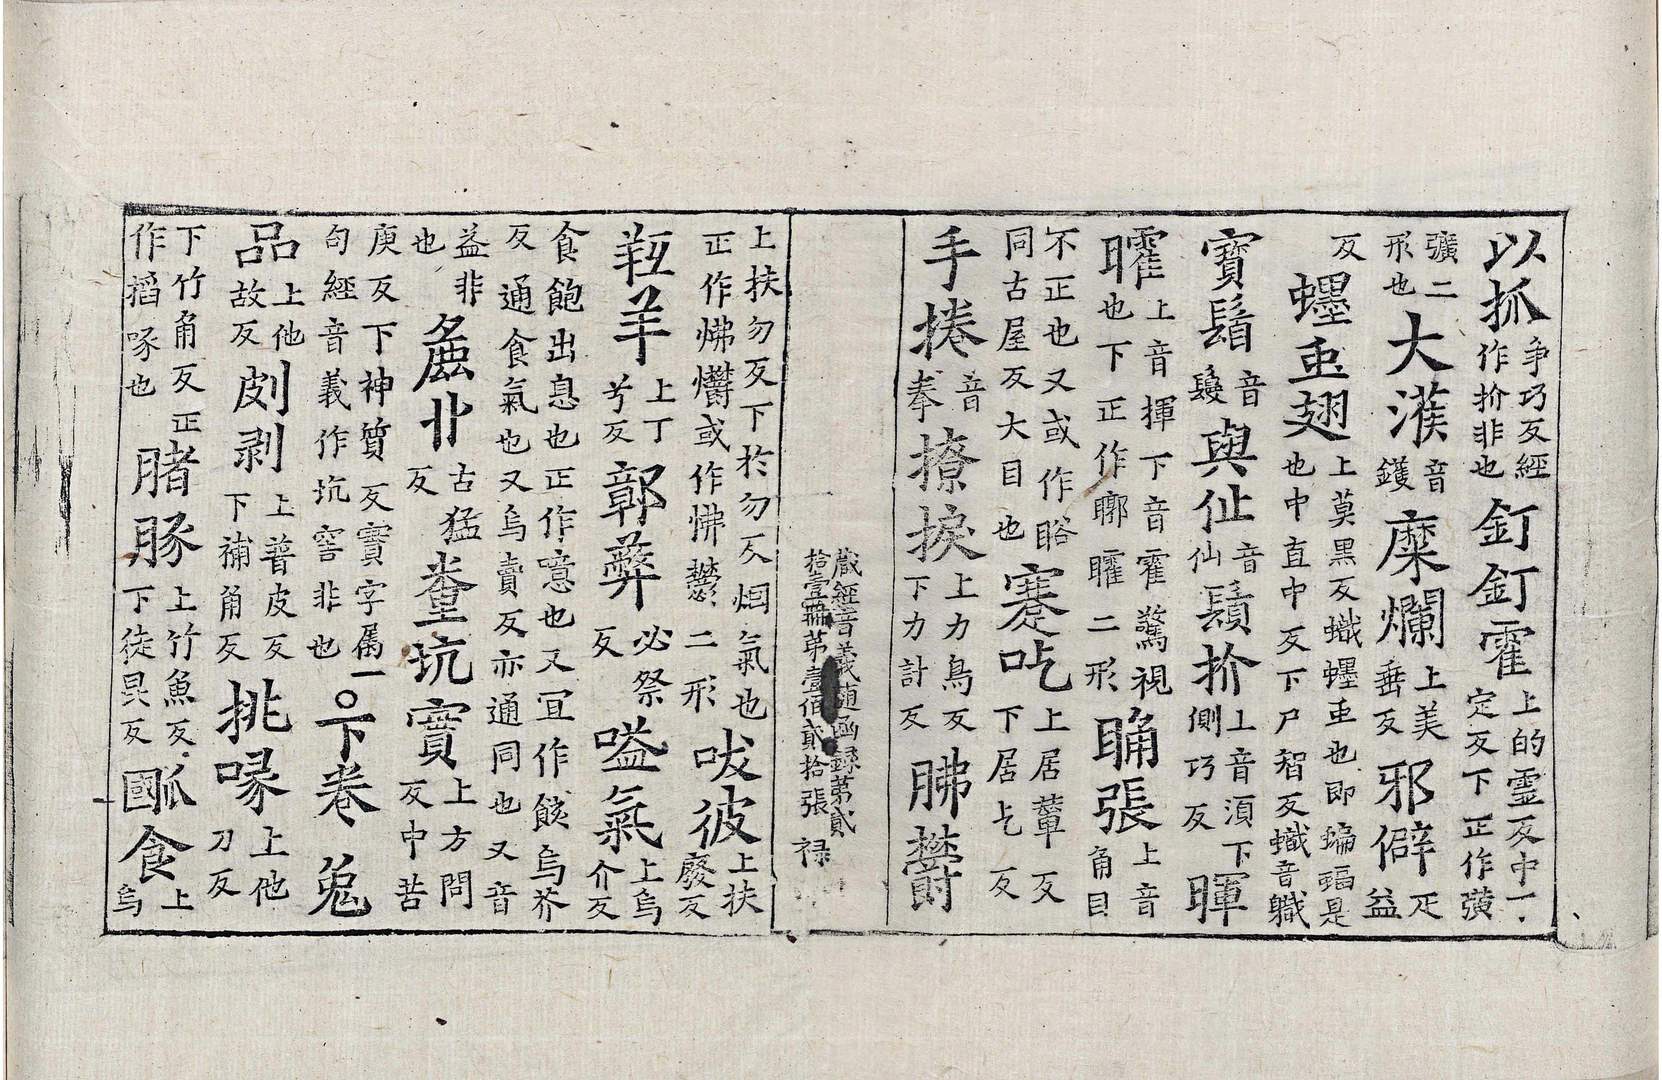 以抓争巧反經作扴非也釘釘霍上的霊反中一定反下正作彍
彉二形也大濩音鑊糜爛上美垂反邪僻疋益
反蟔䖝翅上莫黑反蟙蟔䖝也即蝙蝠是也中直中反下尸智反蟙音職
寶鬚音鬘與仚音仙鬚扴上音湏下側巧反暉
矐上音揮下音霍驚視也下正作矎矐二形䀎張上音角目
不正也又或作䀩同古屋反大目也蹇吃上居輦反下居乞反
手捲音拳撩捩上力鳥反下力計反胇欝
藏經音義随函録第貳拾壹冊第壹佰貳拾張 禄
上扶勿反下於勿反烟氣也正作炥爩或作怫鬱二形吠彼上扶廢反
羥羊上丁兮反鄣蔽必祭反嗌氣上烏介反
食飽出息也正作噫也又冝作餩烏芥反通食氣也又烏賣反亦通同也又音
益非也麁卝古猛反坑實上方問反中苦
庚反下神質反實字属一句經音義作坑窖非也○下卷兔
品上他故反剫剥上普皮反下補角反挑喙上他刀反
下竹角反正作㨶啄也腞上竹魚反下徒㫷反食上烏